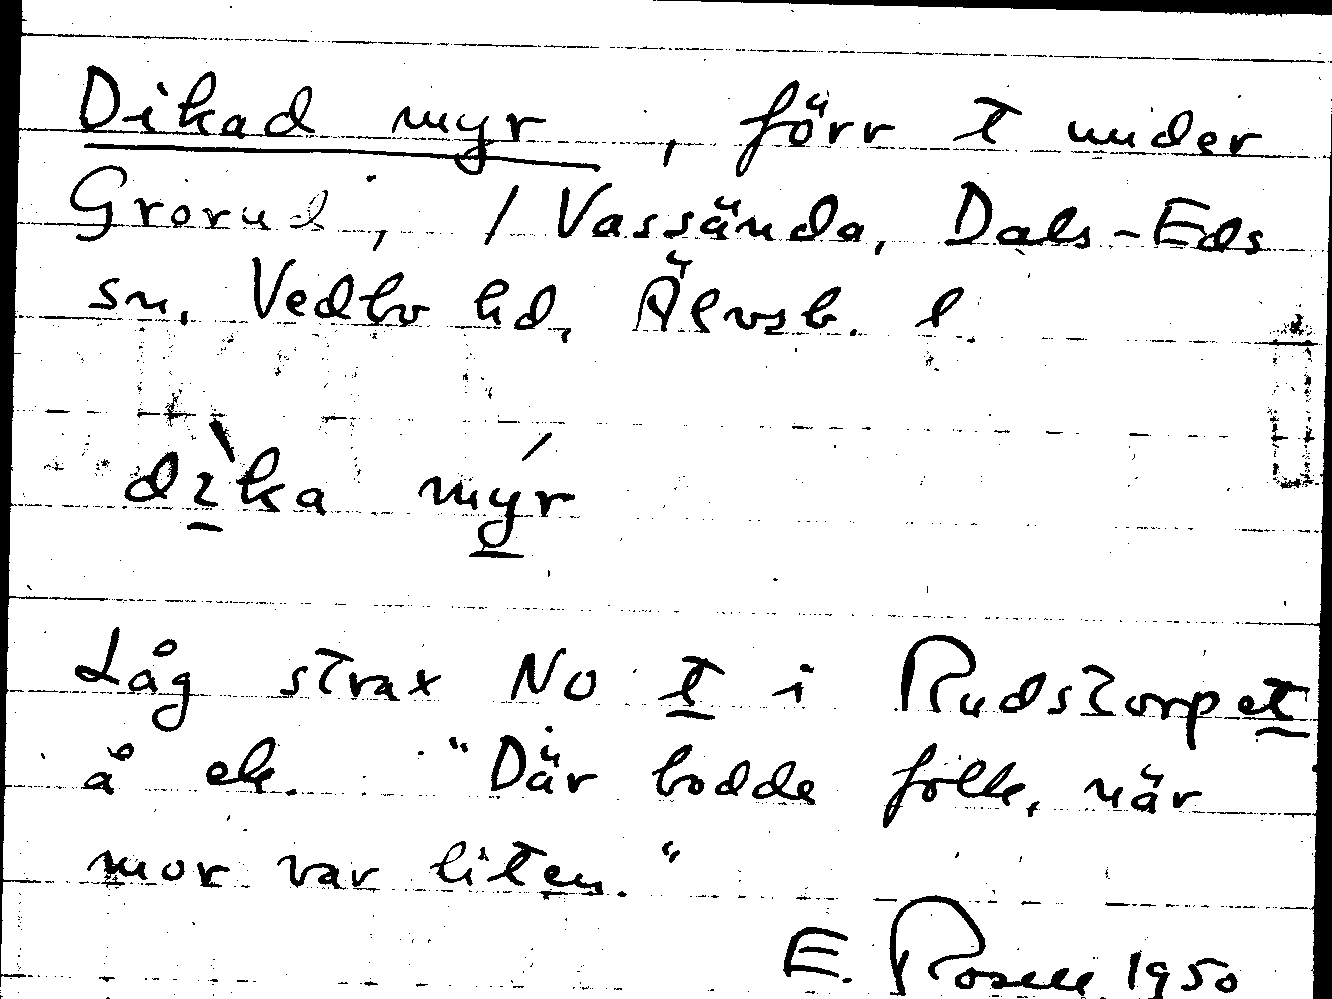 Dikad myr, förr t under
Grorud, / Vassända, Dals-Eds
sn, Vedbo hd, Älvsb. l.
dìka mýr
Låg strax NO t i Rudstorpet
å ek. "Där bodde folk, när
mor var liten."
E. Rosell 1950